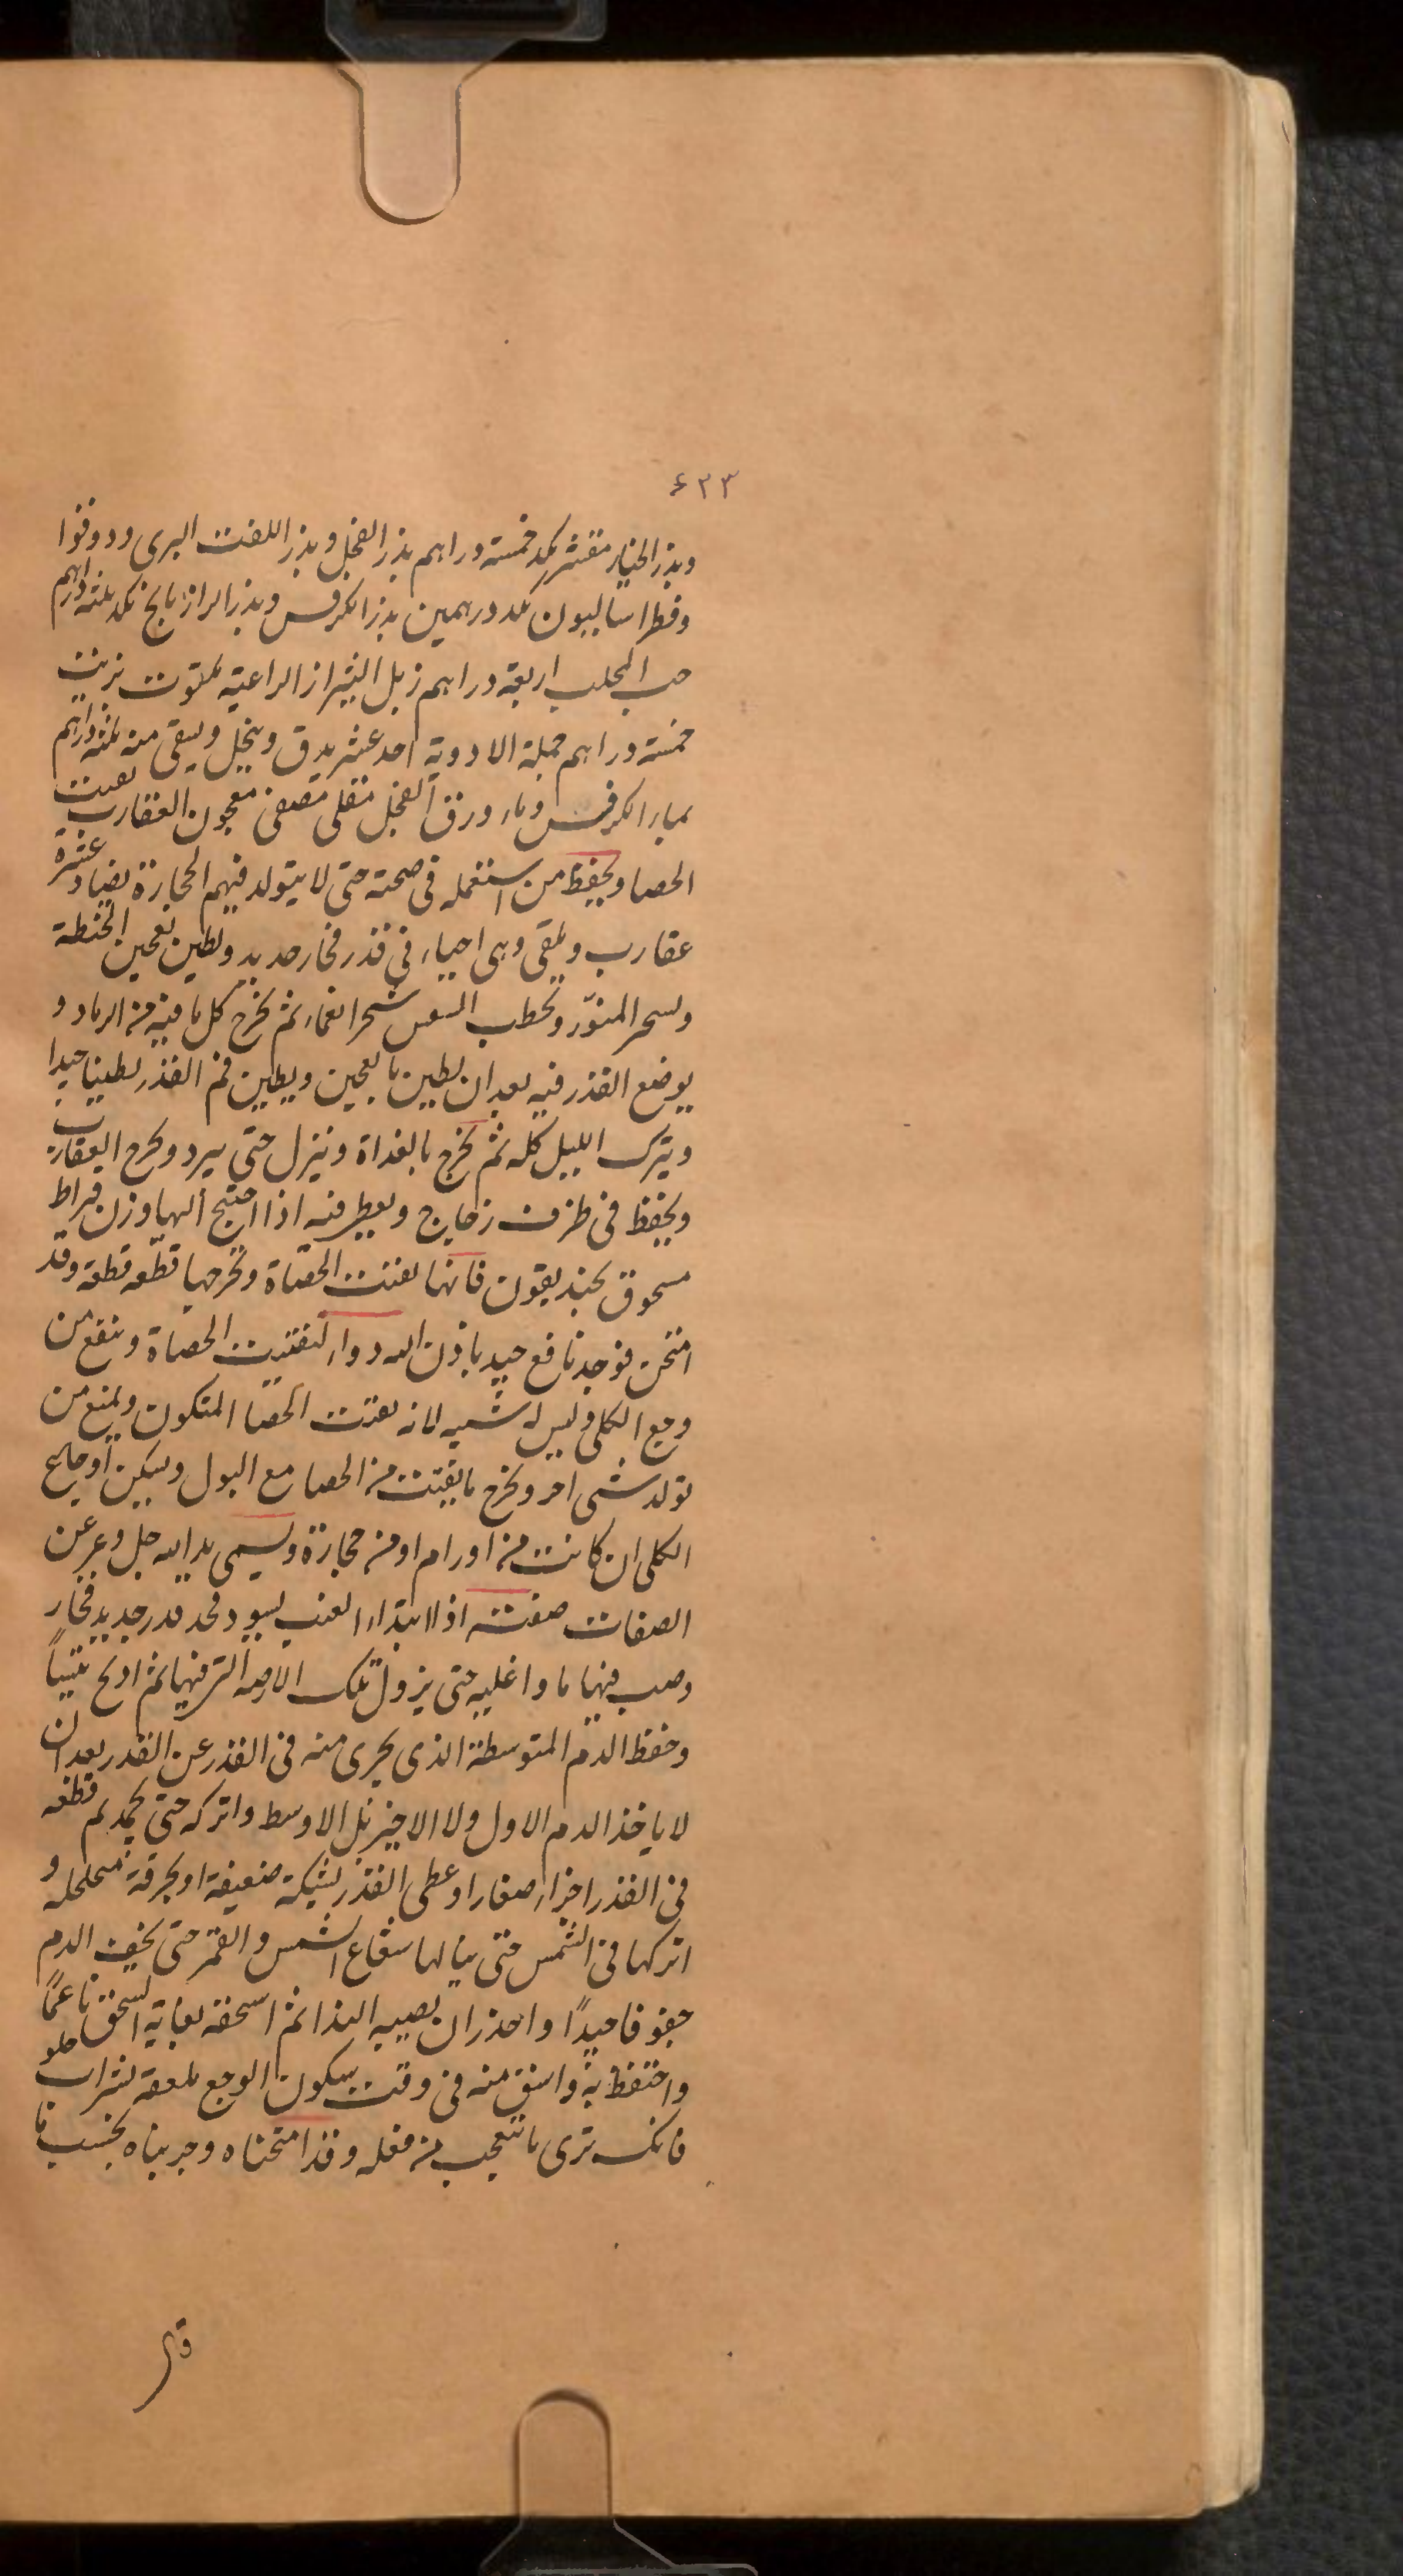 ٤٣٣
وبذر الخيار مقشر بكد خمسة دراهم بذر الفجل وبذر اللفت البرى ودوقوا
وفطراسالييون بكد درهمين بذر الكرفس وبذر الرازيانج بكد ثلثه دراهم
حب المحلب اربعة دراهم زبل الشيراز الراعية ملتوت بزيت
خمسة دراهم جملة الادوية احد عشر يدق وينخل ويسقى منه ثلثه دراهم
بماء الكرفس وماء ورق الفجل مغلى مصفى معجون العقارب يفتت
الحصا ويحفظ من استعمله فى صحته حتى لا يتولد فيهم الحجارة يصاد عشرة
عقارب ويلقى وهى احياء فى قدر فخار جديد ويطين بعجين الحنطة
ويسجر التنور بحطب سجرا نعماء ثم يخرج كل ما فيه من الرماد و
يوضع القدر فيه بعد ان يطين بالعجين ويطين فم القدر تطيينا جيدا
ويترك الليل كله ثم يخرج بالغداة وينزل حتى يبرد ويخرج العقارب
ويحفظ فى ظرف زجاج ويعطى منه اذا احتج اليها وزن قيراط
مسحوق بخنديقون فانها يفتت الحصاة وتخرجها قطعه قطعة وقد
امتحن فوجد نافع جيد باذن الله دواء لتفتيت الحصاة وينفع من
وجع الكلى وليس له شبيه لانه يفتت الحصا المتكون ويمنع من
تولد شى اخر ويخرج ما يفتت من الحصا مع البول ويسكن اوجاع
الكلى ان كانت من اورام او من حجارة ويسمى يد الله جل وعز عن
الصفات صفته اذا ابتداء العنب يسود فخذ قدر جديد فخار
وصب فيها ماء واغليه حتى يزول تلك الارضه التى فيها ثم اذبح تيساً
وحفظ الدم المتوسطة الذى يجرى منه فى القدر عن القدر بعد ان
لا ياخذ الدم الاول ولا الاخير بل الاوسط واتركه حتى يجمد ثم قطعه
فى القدر اجزاء صغارا وغطى القدر بشبكة ضعيفة او بخرقة متخلخله و
اتركها فى الشمس حتى ينالها شعاع الشمس والقمر حتى يجف الدم
جفوفا جيداً واحذر ان يصيبه الندا ثم اسحقه بغاية السحق ناعماً
واحتفظ به واسق منه فى وقت سكون الوجع ملعقه بشراب حلو
فانك ترى ما تتعجب من فعله وقد امتحناه وجربناه بحسب ما
قا